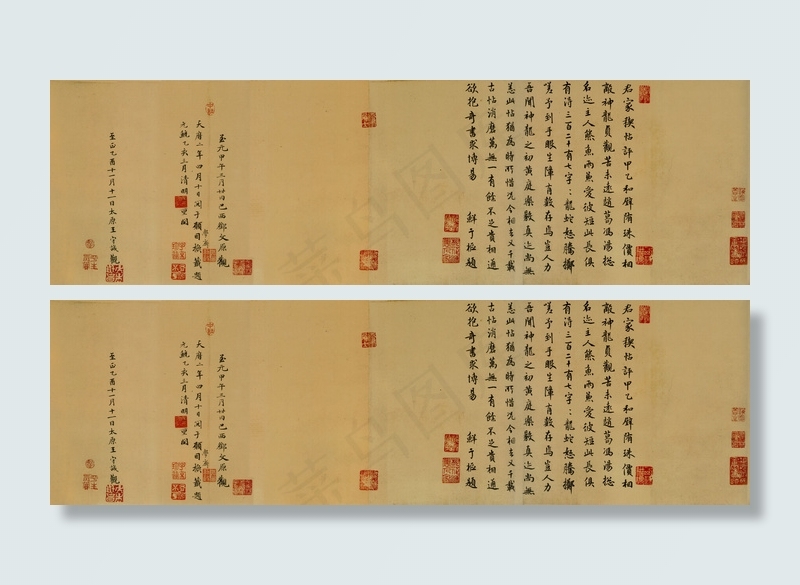 君家禊帖評甲乙和璧隋珠價相
敵神龍貞觀苦未遠趙葛馮湯總
名迹主人熊魚兩兼愛彼短此長俱
有得三百二十有七字：龍蛇怒騰擲
嗟予到手眼生障有數存焉豈人力
吾聞神龍之初黃庭樂毅真迹尚無
恙此帖猶為時所惜況今相去又千載
古帖消磨萬無一有餘不足貴相通
欲抱奇書求博易 鮮于樞題
至元甲午三月廿四日巴西鄧文原觀
二年四月十日
元統乙亥三月清明
至正乙酉十一月十一日太原王守誠觀
君家禊帖評甲乙和璧隋珠價相
敵神龍貞觀苦未遠趙葛馮湯總
名迹主人熊魚兩兼愛彼短此長俱
有得三百二十有七字：龍蛇怒騰擲
嗟予到手眼生障有數存焉豈人力
吾聞神龍之初黃庭樂毅真迹尚無
恙此帖猶為時所惜況今相去又千載
古帖消磨萬無一有餘不足貴相通
欲抱奇書求博易 鮮于樞題
至元甲午三月廿四日巴西鄧文原觀
二年四月十日
元統乙亥三月清明
至正乙酉十一月十一日太原王守誠觀